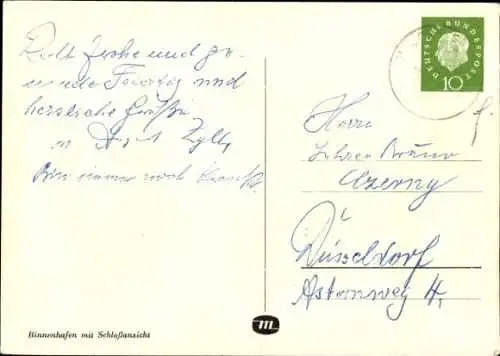 Recht frohe und ge-
sunde Feiertag und
herzliche Grüße
Bin immer noch krank.
DEUTSCHE BUNDESPOST
10
Herrn
Lehrer Bruno
Czerny
Düsseldorf
Asternweg 4,
m
Binnenhafen mit Schloßansicht